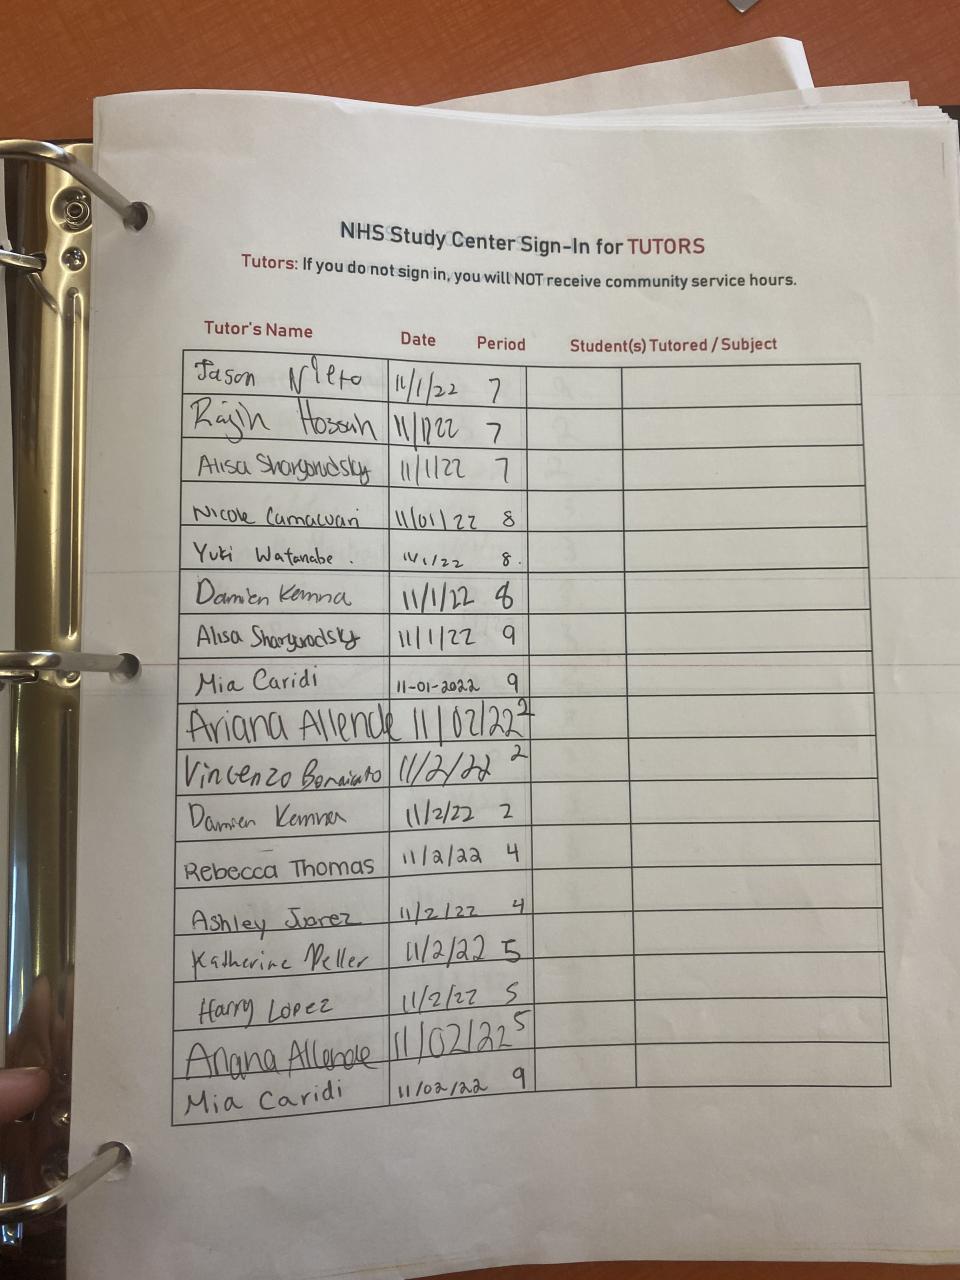 NHS Study Center Sign-In for TUTORS
Tutors: If you do not sign in, you will NOT receive community service hours.
Tutor's Name Date Period Student(s) Tutored / Subject
Jason Nieto 11/1/22 7
Hossain 11/1/22 7
Alisa Shargorodsky 11/1/22 7
Nicole 11/01/22 8
Yuki Watanabe. 11/1/22 8.
Damien Kemna 11/1/22 8
Alisa Shargorodsky 11/1/22 9
Mia Caridi 11-01-2022 9
Ariana Allende 11/02/22 2
Vincenzo 11/2/22 2
Damien 11/2/22 2
Rebecca Thomas 11/2/22 4
Ashley Juarez 11/2/22 4
Katherine 11/2/22 5
Harry Lopez 11/2/22 5
Ariana Allende 11/02/22 5
Mia Caridi 11/02/22 9